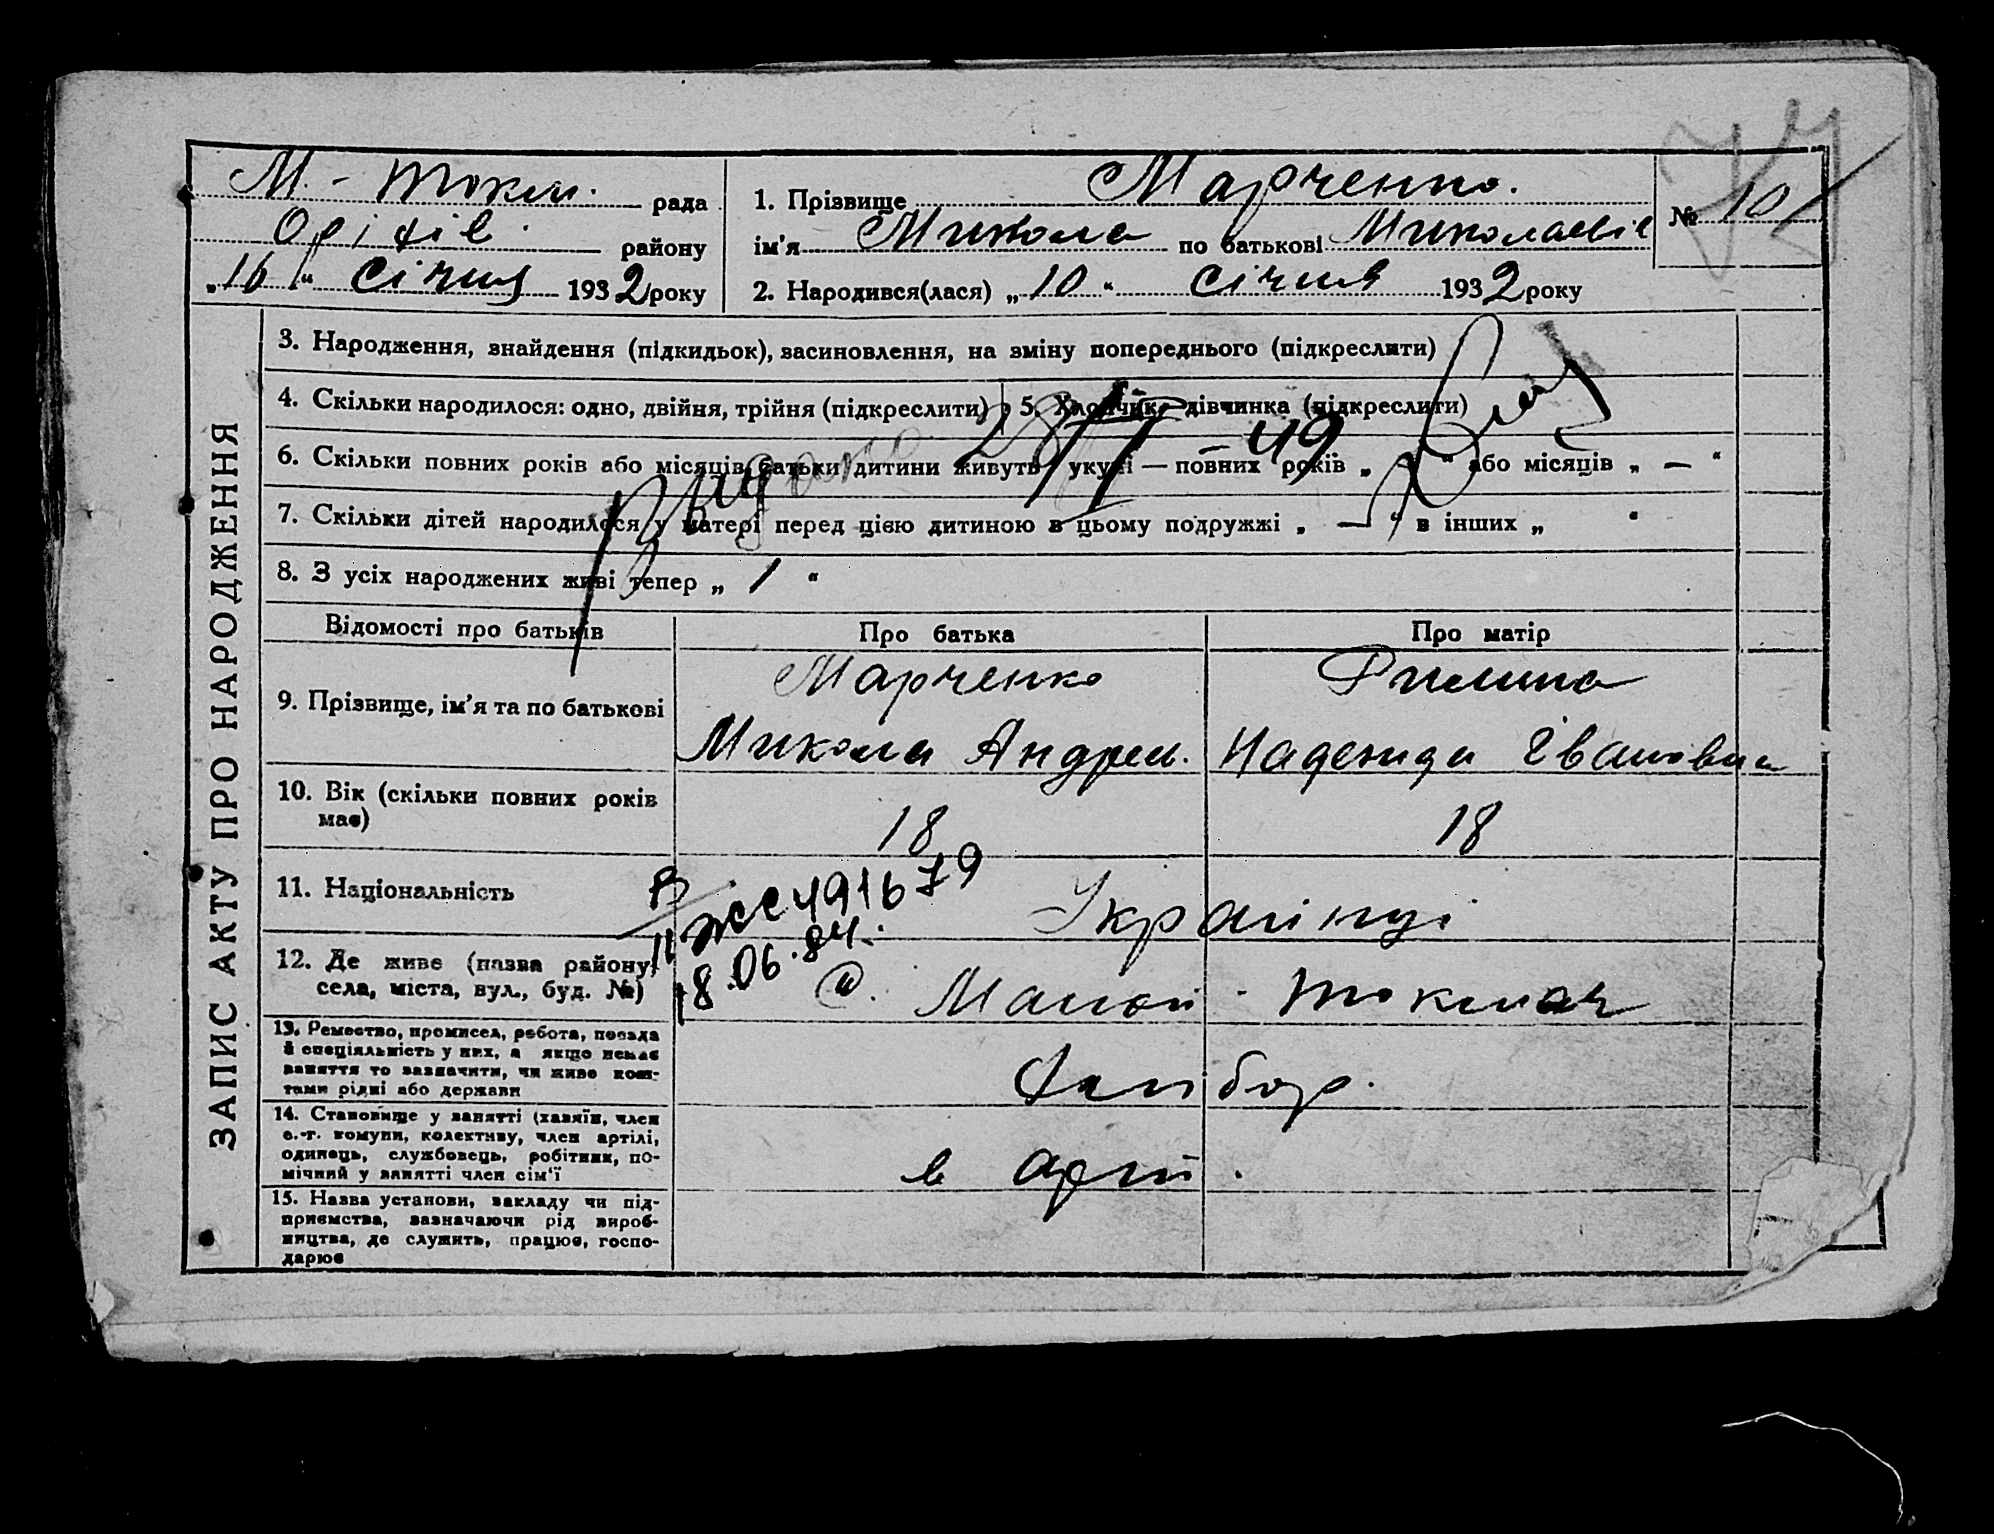 М.-Токм. рада
Оріхів. району
„16“ Січня 1932 року
1. Прізвище Марченко.
ім'я Микола по батькові Миколаєвіч
№ 10
2. Народився(лася) „10“ Січня 1932 року
ЗАПИС АКТУ ПРО НАРОДЖЕННЯ
3. Народження, знайдення (підкидьок), засиновлення, на зміну попереднього (підкреслити)
4. Скільки народилося: одно, двійня, трійня (підкреслити) 5. Хлопчик, дівчинка (підкреслити)
6. Скільки повних років або місяців батьки дитини живуть укупі — повних років „ “ або місяців „ — “
7. Скільки дітей народилося у матері перед цією дитиною в цьому подружжі „ — “ в інших „ “
8. З усіх народжених живі тепер „ 1 “
Відомості про батьків Про батька Про матір
9. Прізвище, ім'я та по батькові
Марченко
Микола Андреє.
Надежда Івановна
10. Вік (скільки повних років має)
18 18
11. Національність
Українці
ЖС 491679
18.06.84.
12. Де живе (назва району, села, міста, вул., буд. №)
С. Малой-Токмач
13. Ремество, промисел, робота, посада
й спеціяльність у них, а якщо немає
заняття то зазначити, чи живе кош-
тами рідні або держави
Хлібор.
14. Становище у занятті (хазяїн, член
с.-г. комуни, колективу, член артілі,
одинець, службовець, робітник, по-
мічний у занятті член сім'ї
в арт.
15. Назва установи, закладу чи під-
приємства, зазначаючи рід вироб-
ництва, де служить, працює, госпо-
дарює